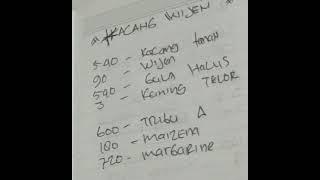 " KACANG WIJEN "
540 - Kacang tanah
90 - Wijen
540 - Gula HALUS
3 - Kuning TELOR
600 - TRIGU A
180 - MAIZENA
720 - MARGARINE